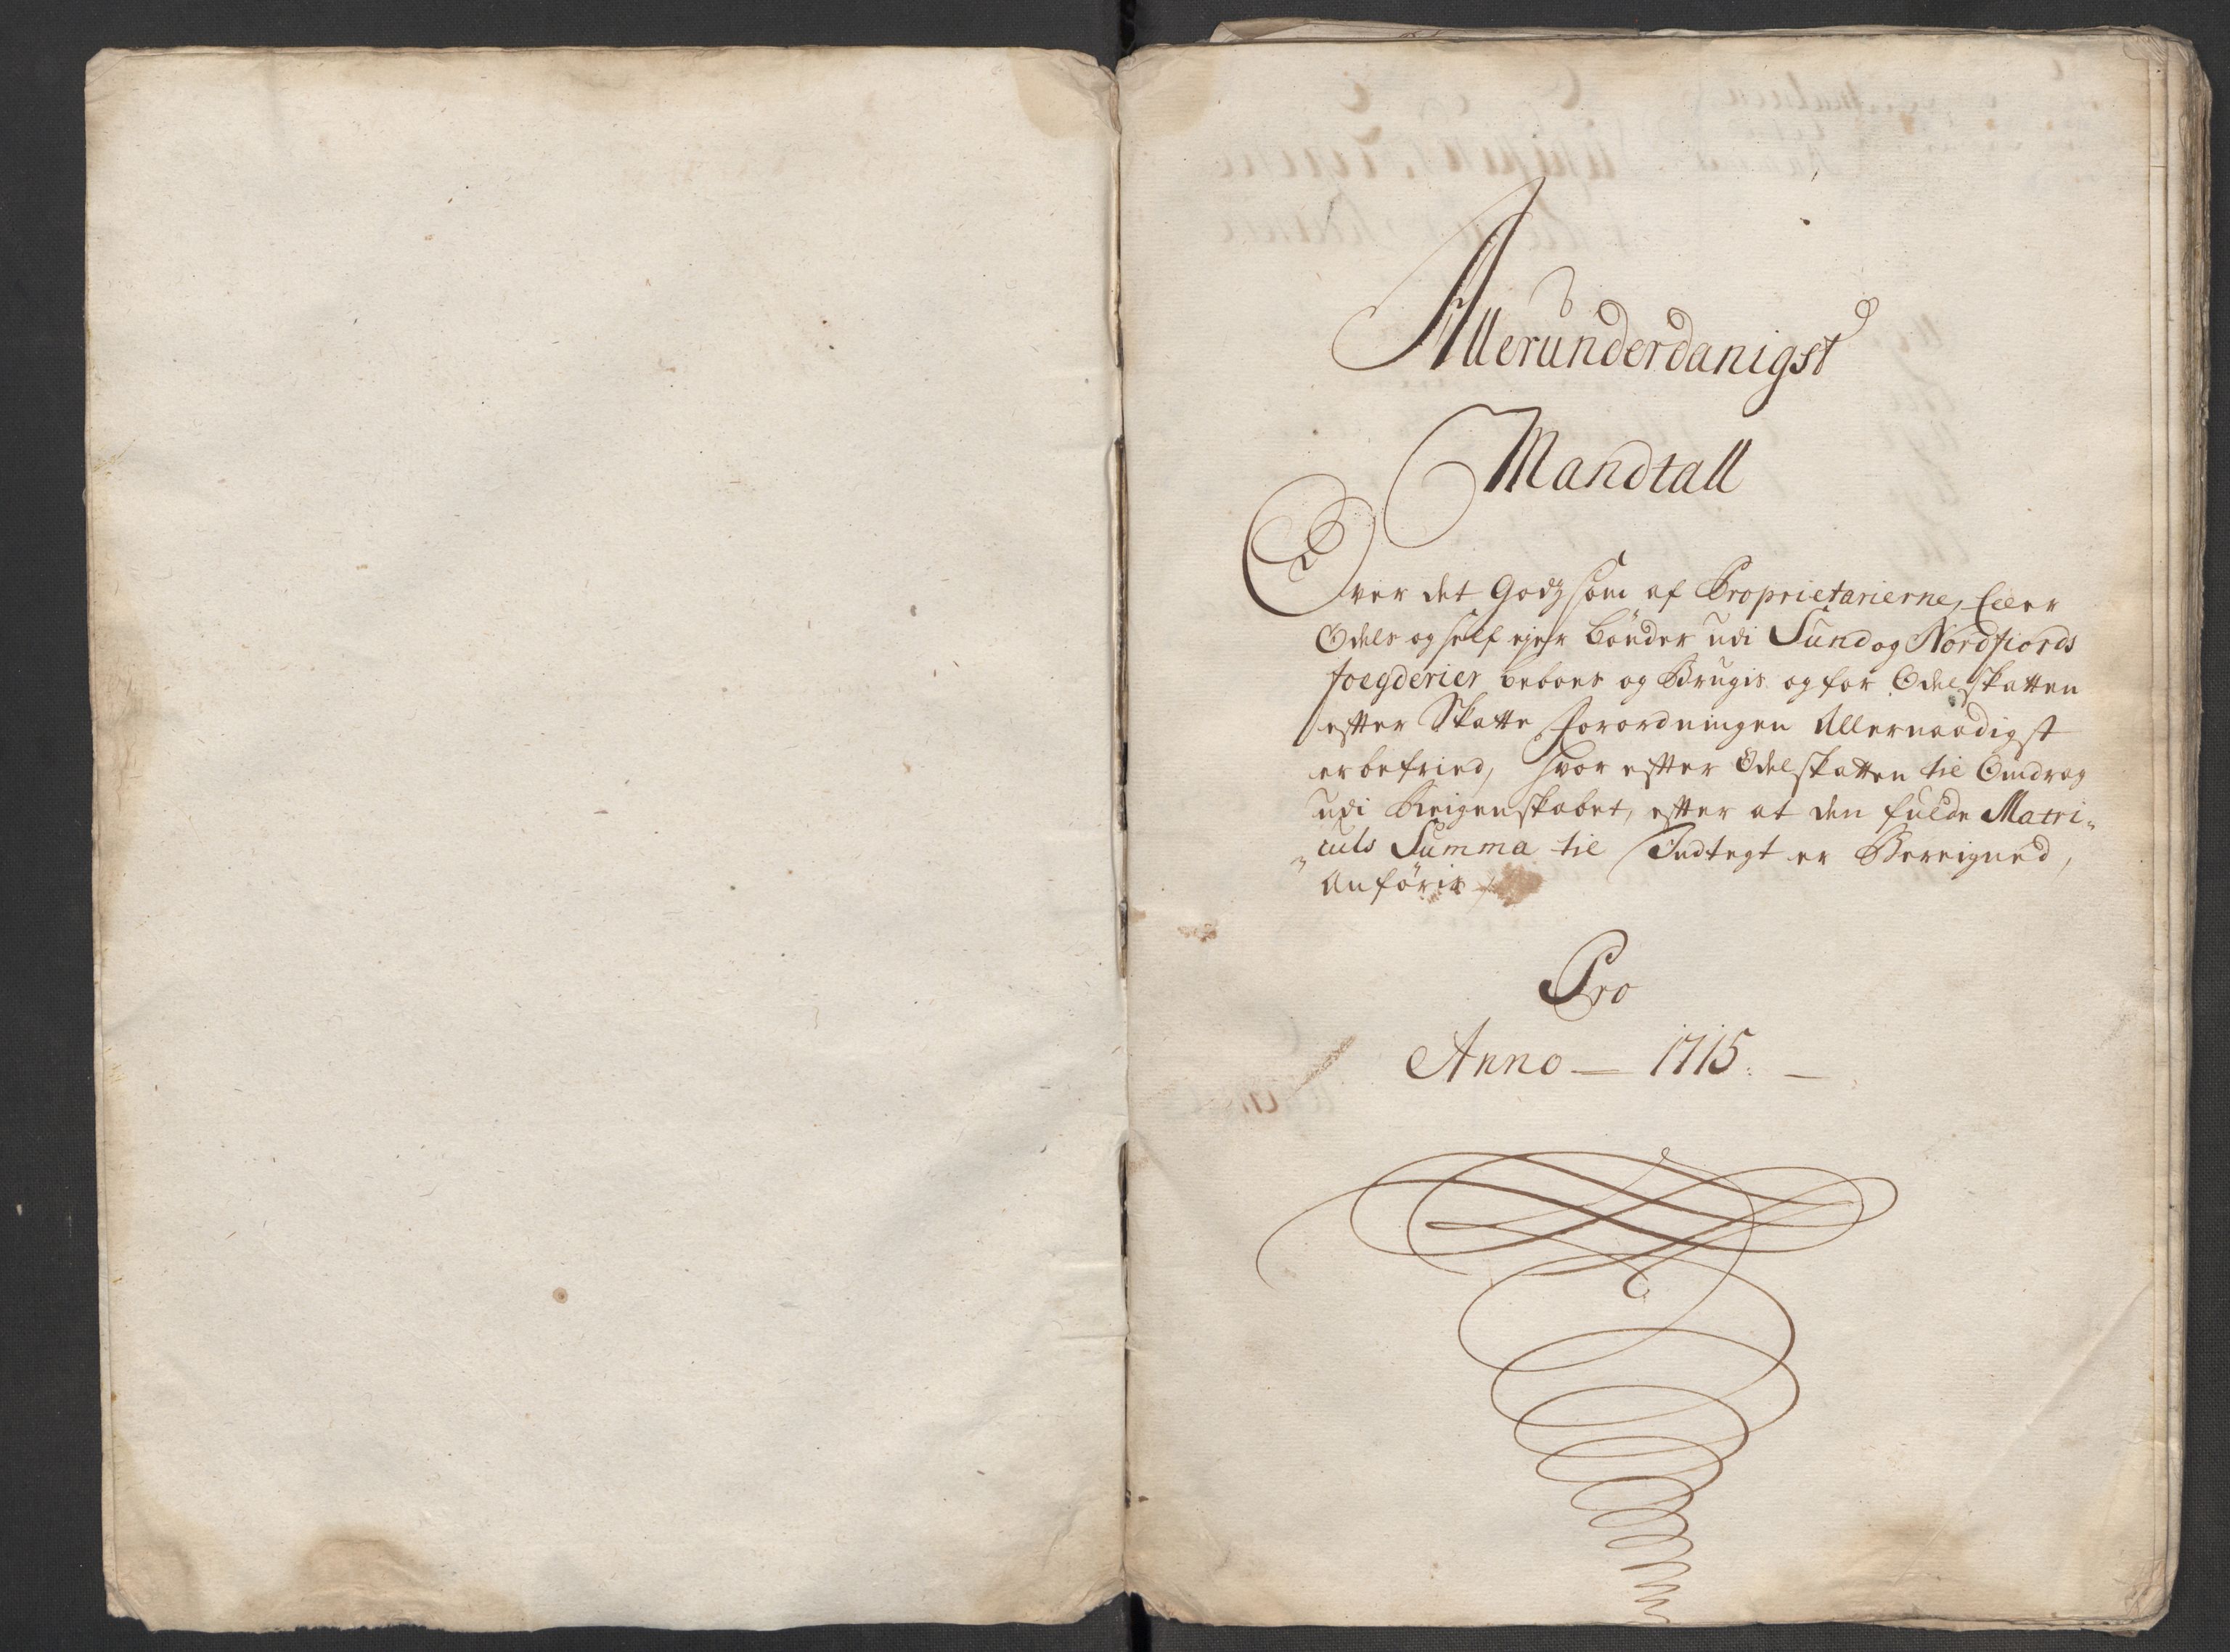 Allerunderdanigst
Mandtall
Over det Godz som af Proprietarierne, Eller
Odels og self ejer bönder udi Sund og Nordfiords
foegderier beboes og Brugis og for Odelskatten
efter Skatte Forordningen Allernaadigst
er befried, hvor efter Odelskatten til Omdrag
udi Reigenskabet, efter at den fulde Matri„
„culs Summa til Indtegt er Bereigned,
Anföris
Pro
Anno — 1715. —